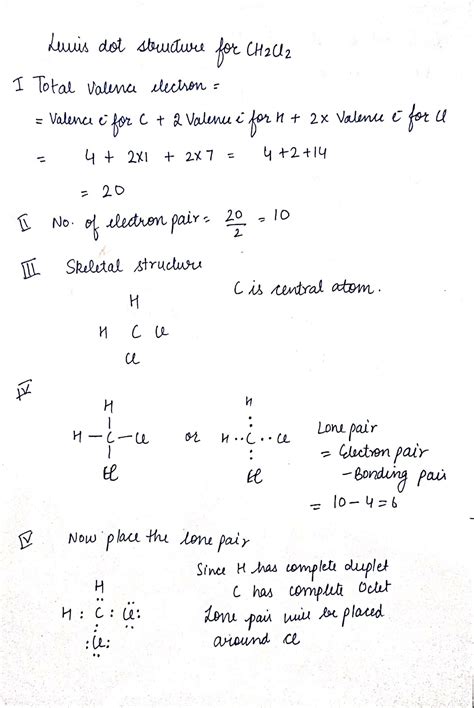 Lewis dot structure for CH2Cl2
I Total valence electron =
= Valence ē for C + 2 Valence ē for H + 2x Valence ē for Cl
= 4 + 2x1 + 2x7 = 4+2+14
= 20
II No. of electron pair = 20/2 = 10
III Skeletal structure
C is central atom.
H
H C Cl
Cl
IV
H H
H – C – Cl or H : C : Cl
Cl Cl
Lone pair
= Electron pair
– Bonding pair
= 10 – 4 = 6
V Now place the lone pair
Since H has complete duplet
C has complete Octet
Lone pair will be placed
around Cl
H
H : C : Cl:
:Cl: